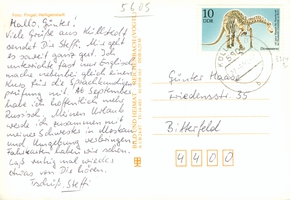 Foto: Pingel, Heiligenstadt
56.05
Hallo, Günter!
Viele Grüße aus Küllstedt
sendet Dir Steffi. Mir geht
es soweit ganz gut. Ich
unterrichte fast nur Englisch,
mache nebenbei gleich einen
Kurs für die Sprachkundigen-
prüfung mit. Ab September
habe ich hoffentlich mehr
Russisch. Meinen Urlaub
werde ich zusammen mit
meiner Schwester in Moskau
und Umgebung verbringen.
Fahrkarten haben wir schon.
Laß ruhig mal wieder
etwas von Dir hören.
Tschüß, Steffi
BILD UND HEIMAT REICHENBACH (VOGTL)
10
DDR
Günter Haase
Friedensstr. 35
Bitterfeld
4400